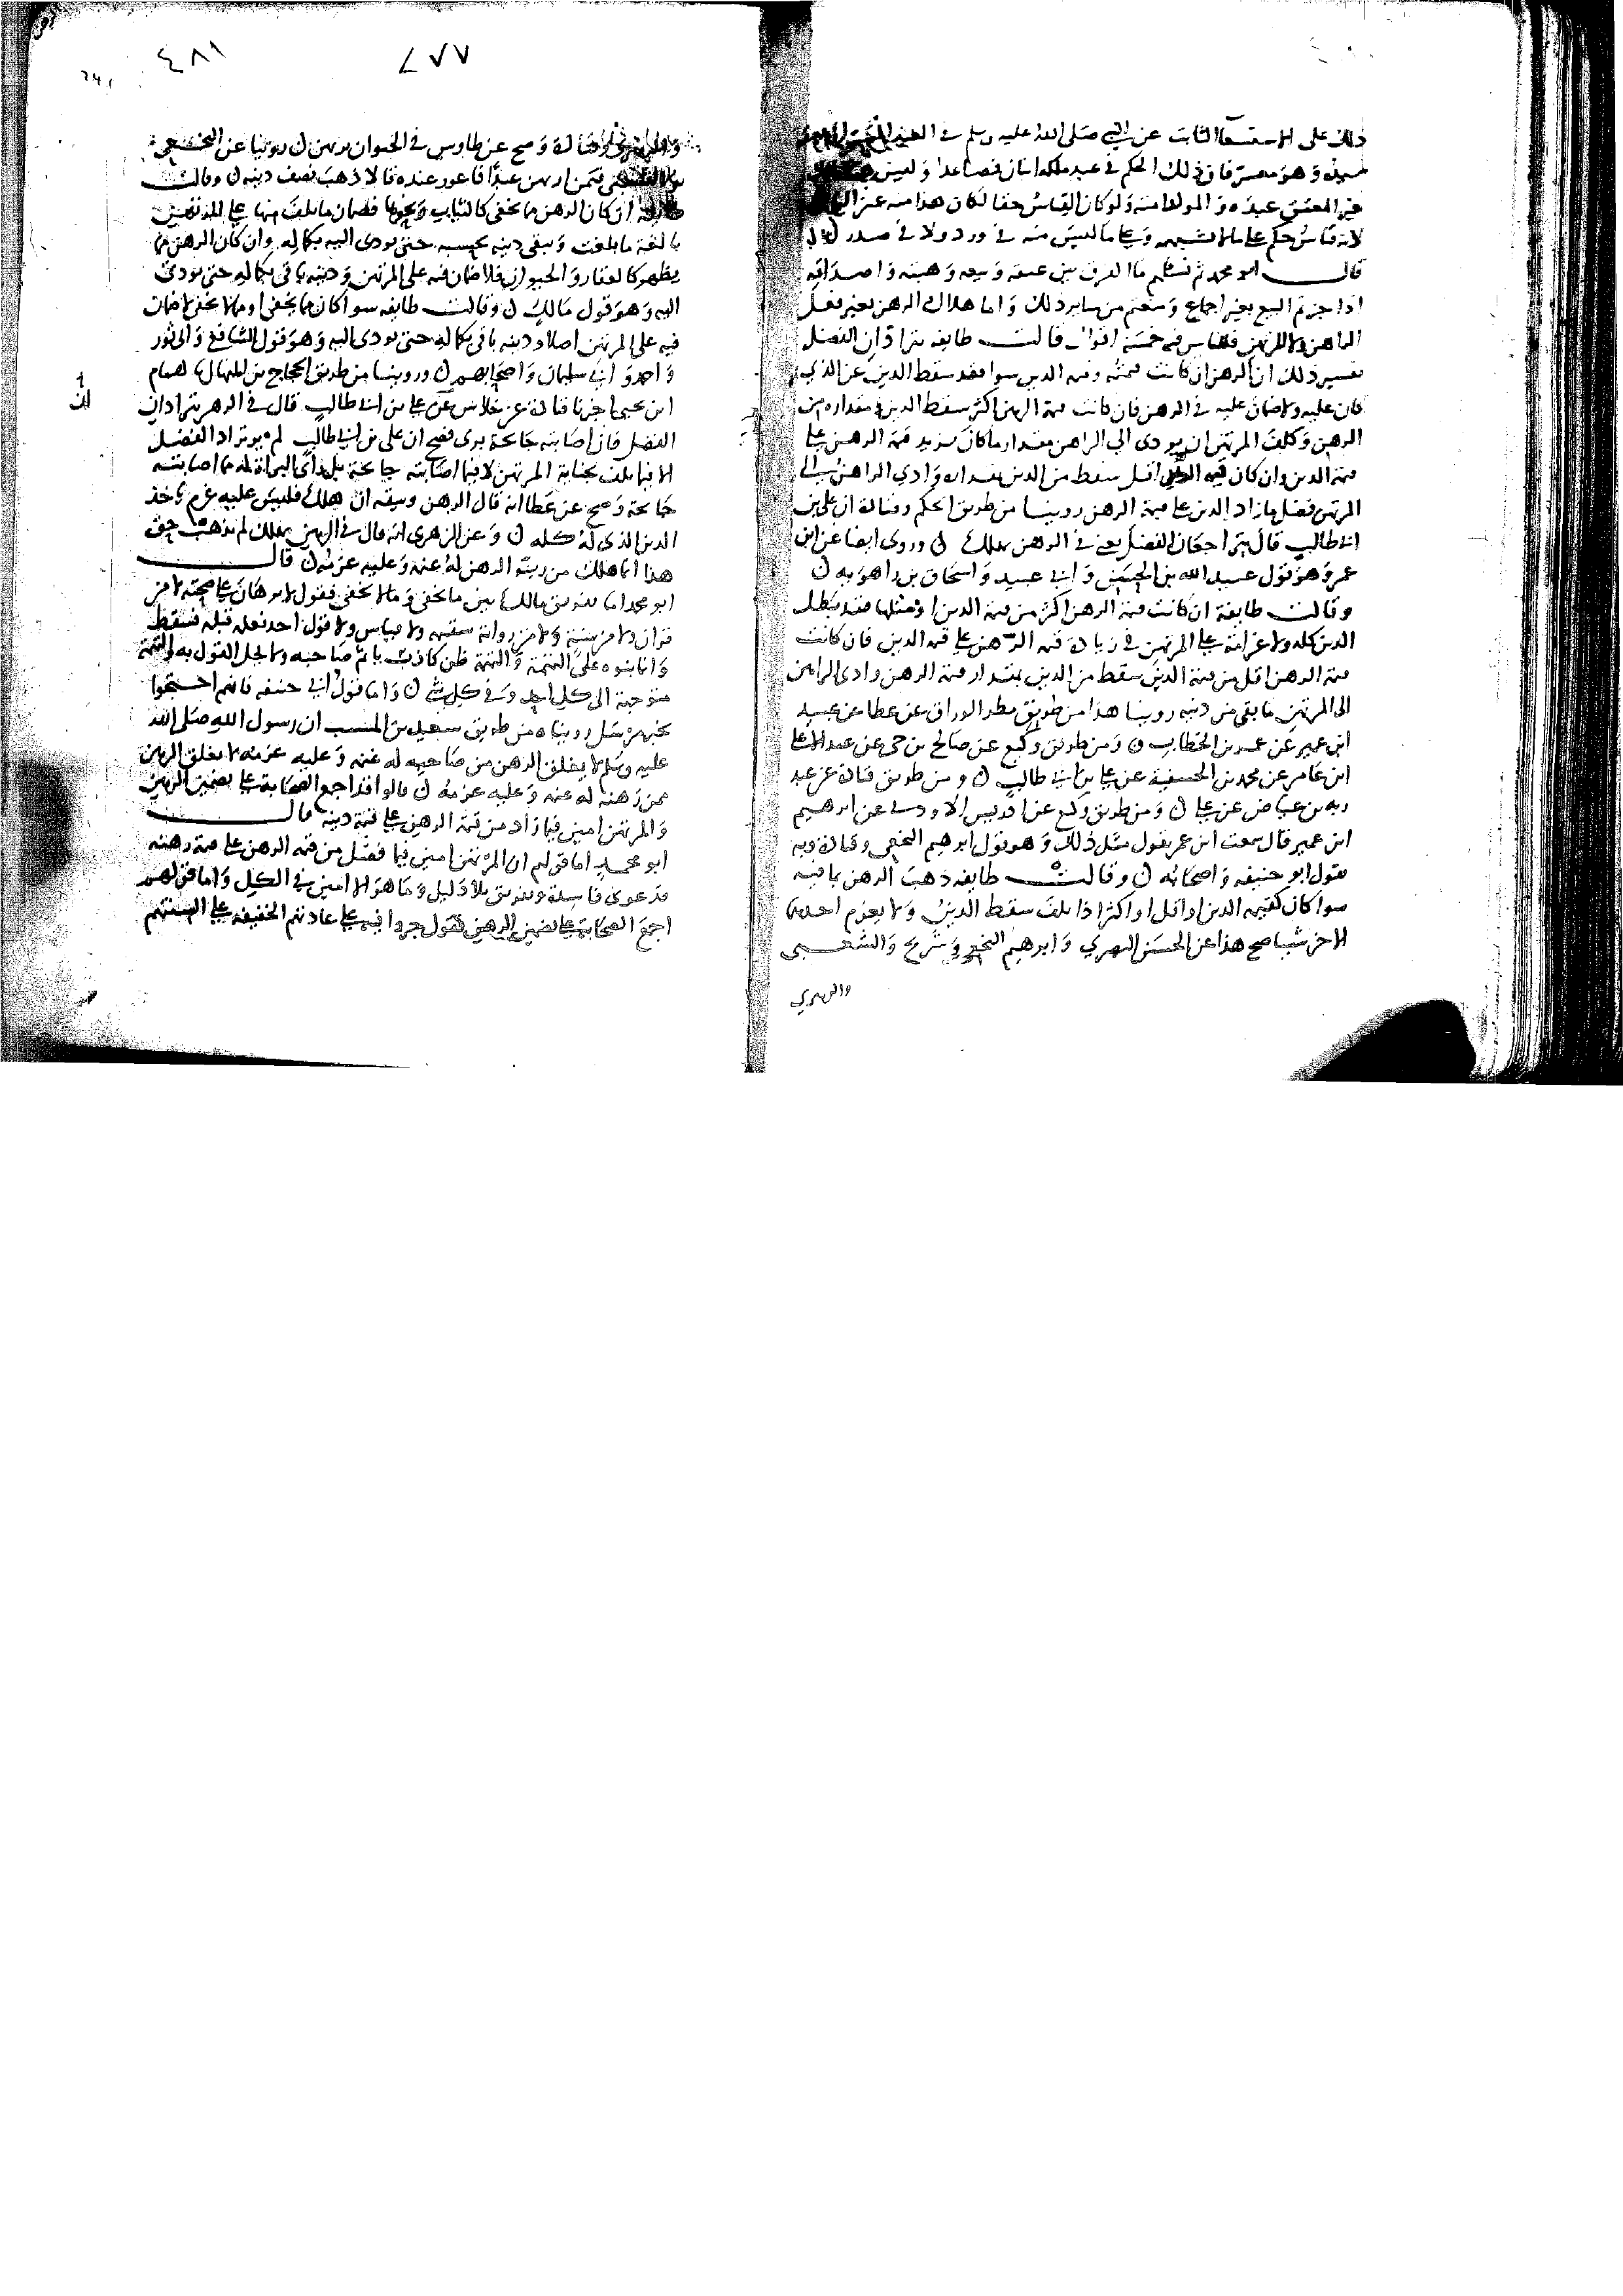 ذلك على الاستسعا الثابت عن النبي صلى الله عليه وسلم في العبد
سيده وهو معسر فان ذلك الحكم في عبد ملكه انسان فصاعدا وليس
غير المعتق عبده ولا مولا امته ولو كان القياس حقا لكان هذا منه عين
لانه قياس حكم على ما لا يشبهه وعلى ما ليس منه في ورد ولا في صدر ن
قال ابو محمد ثم نسلهم ما الفرق بين عتقه وبيعه وهبته واصداقه
اذا جزتم البيع بغير اجماع ومنعتم من ساير ذلك واما هلاك الرهن بغير فعل
الراهن ولا المرتهن فللناس فيه خمسة اقوال قالت طايفة يترادان الفضل
تفسير ذلك ان الرهن ان كانت قيمته وقيمة الدين سوا فقد سقط الدين عن الذي
كان عليه ولا ضمان عليه في الرهن فان كانت قيمة الرهن اكثر سقط الدين ومقداره من
الرهن وكلف المرتهن ان يودي الى الراهن مقدار ما كان تزيد قيمة الرهن على
قيمة الدين وان كان قيمة الرهن اقل سقط من الدين بمقداره وادي الراهن الى
المرتهن فضل ما زاد الدين على قيمة الرهن روينا من طريق الحكم وقتادة ان علي بن
ابي طالب قال يتراجعان الفضل يعني في الرهن يهلك ن وروي ايضا عن ابن
عمر وهو قول عبيد الله بن الحسن وابي عبيد واسحاق بن راهويه ن
وقالت طايفة ان كانت قيمة الرهن اكثر من قيمة الدين او مثلها فقد بطل
الدين كله ولا غرامة على المرتهن في زيادة قيمة الرهن على قيمة الدين فان كانت
قيمة الرهن اقل من قيمة الدين سقط من الدين بمقدار قيمة الرهن وادى الراهن
الى المرتهن ما بقي من دينه روينا هذا من طريق مطر الوراق عن عطا عن عبيد
ابن عمير عن عمر بن الخطاب ن ومن طريق وكيع عن صالح بن حي عن عبد الاعلى
ابن عامر عن محمد بن الحنفية عن علي بن ابي طالب ن ومن طريق قتادة عن عبد
ربه بن عياض عن علي ن ومن طريق وكيع عن ادريس الاودي عن ابرهيم
ابن عمير قال سمعت ابن عمر يقول مثل ذلك وهو قول ابرهيم النخعي وقتادة وبه
يقول ابو حنيفه واصحابه ن وقالت طايفه ذهب الرهن بما فيه
سوا كان كقيمة الدين او اقل او اكثر اذا تلف سقط الدين ولا يغرم احدهما
للاخر شيا صح هذا عن الحسن البصري وابرهيم النخعي وشريح والشعبي
والزهري
٤٨١
٧٧٧
والزهري وقتادة وصح عن طاوس في الحيوان يرتهن ن روينا عن النخعي
والشعبي فيمن ارتهن عبدا فاعور عنده قالا ذهب نصف دينه ن وقالت
طايفة ان كان الرهن مما يخفى كالثياب ونحوها فضمان ما تلف منها على المرتهن
بالغة ما بلغت ويبقى دينه بحسبه حتى يودى اليه بكماله وان كان الرهن مما
يظهر كالعقار والحيوان فلا ضمان فيه على المرتهن ودينه باقي بكماله حتى يودى
اليه وهو قول مالك ن وقالت طايفه سوا كان مما يخفى او مما لا يخفى لا ضمان
فيه على المرتهن اصلا ودينه باقي بكماله حتى يودى اليه وهو قول الشافعي وابي ثور
واحمد وابي سليمان واصحابهم ن وروينا من طريق الحجاج بن المنهال نا همام
ابن يحيى اخبرنا قتادة عن خلاس عن علي بن ابي طالب قال في الرهن يترادان
الفضل فان اصابته جايحة بري فصح ان علي بن ابي طالب لم ير تراد الفضل
الا فيما تلف بجناية المرتهن لا فيما اصابته جايحة بل راى البراة له مما اصابته
جايحة وصح عن عطا انه قال الرهن وثيقة ان هلك فليس عليه غرم ياخذ
الدين الذي له كله ن وعن الزهري انه قال في الرهن يهلك لم يذهب حق
هذا انما هلك من رب الرهن له غنمه وعليه غرمه ن قال
ابو محمد اما تفريق مالك بين ما يخفى وما لا يخفى فقول لا برهان على صحته لا من
قران ولا من سنة ولا من رواية سقيمة ولا قياس ولا قول احد نعلمه قبله فسقط
وانما بنوه على التهمة والتهمة ظن كاذب ياثم صاحبه ولا يحل القول به والتهمة
متوجهة الى كل احد وفي كل شي ن واما قول ابي حنيفه فانهم احتجوا
بخبر مرسل رويناه من طريق سعيد بن المسيب ان رسول الله صلى الله
عليه وسلم لا يغلق الرهن من صاحبه له غنمه وعليه غرمه لا يغلق الرهن
ممن رهنه له غنمه وعليه غرمه ن قالوا قد اجمع الصحابة على تضمين الرهن
والمرتهن امين فيما زاد من قيمة الرهن على قيمة دينه قال
ابو محمد اما قولهم ان المرتهن امين فيما فضل من قيمة الرهن على قيمة رهنه
فدعوى فاسدة وتفريق بلا دليل وما هو الا امين في الكل واما قولهم
اجمع الصحابة على تضمين الرهن فقول جروا فيه على عادتهم الخفيفة على السنتهم